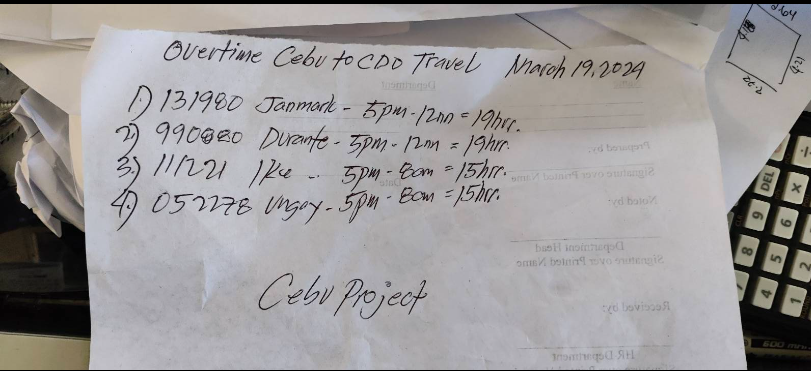 Overtime Cebu to CDO Travel March 19, 2024
1) 131980 Janmark - 5pm - 12nn = 19hrr.
2) 990880 Durante - 5pm - 12nn = 19hrr.
3.) 111221 Ike .. 5pm - 8am = 15hrr.
4.) 052278 Ungay - 5pm - 8am = 15hrr.
Cebu Project
Department
Prepared by:
Signature over Printed Name
Date
Noted by:
Department Head
Signature over Printed Name
Received by:
HR Department
2.64
4.21
20.2
DEL
×
9
6
8
5
2
4
1